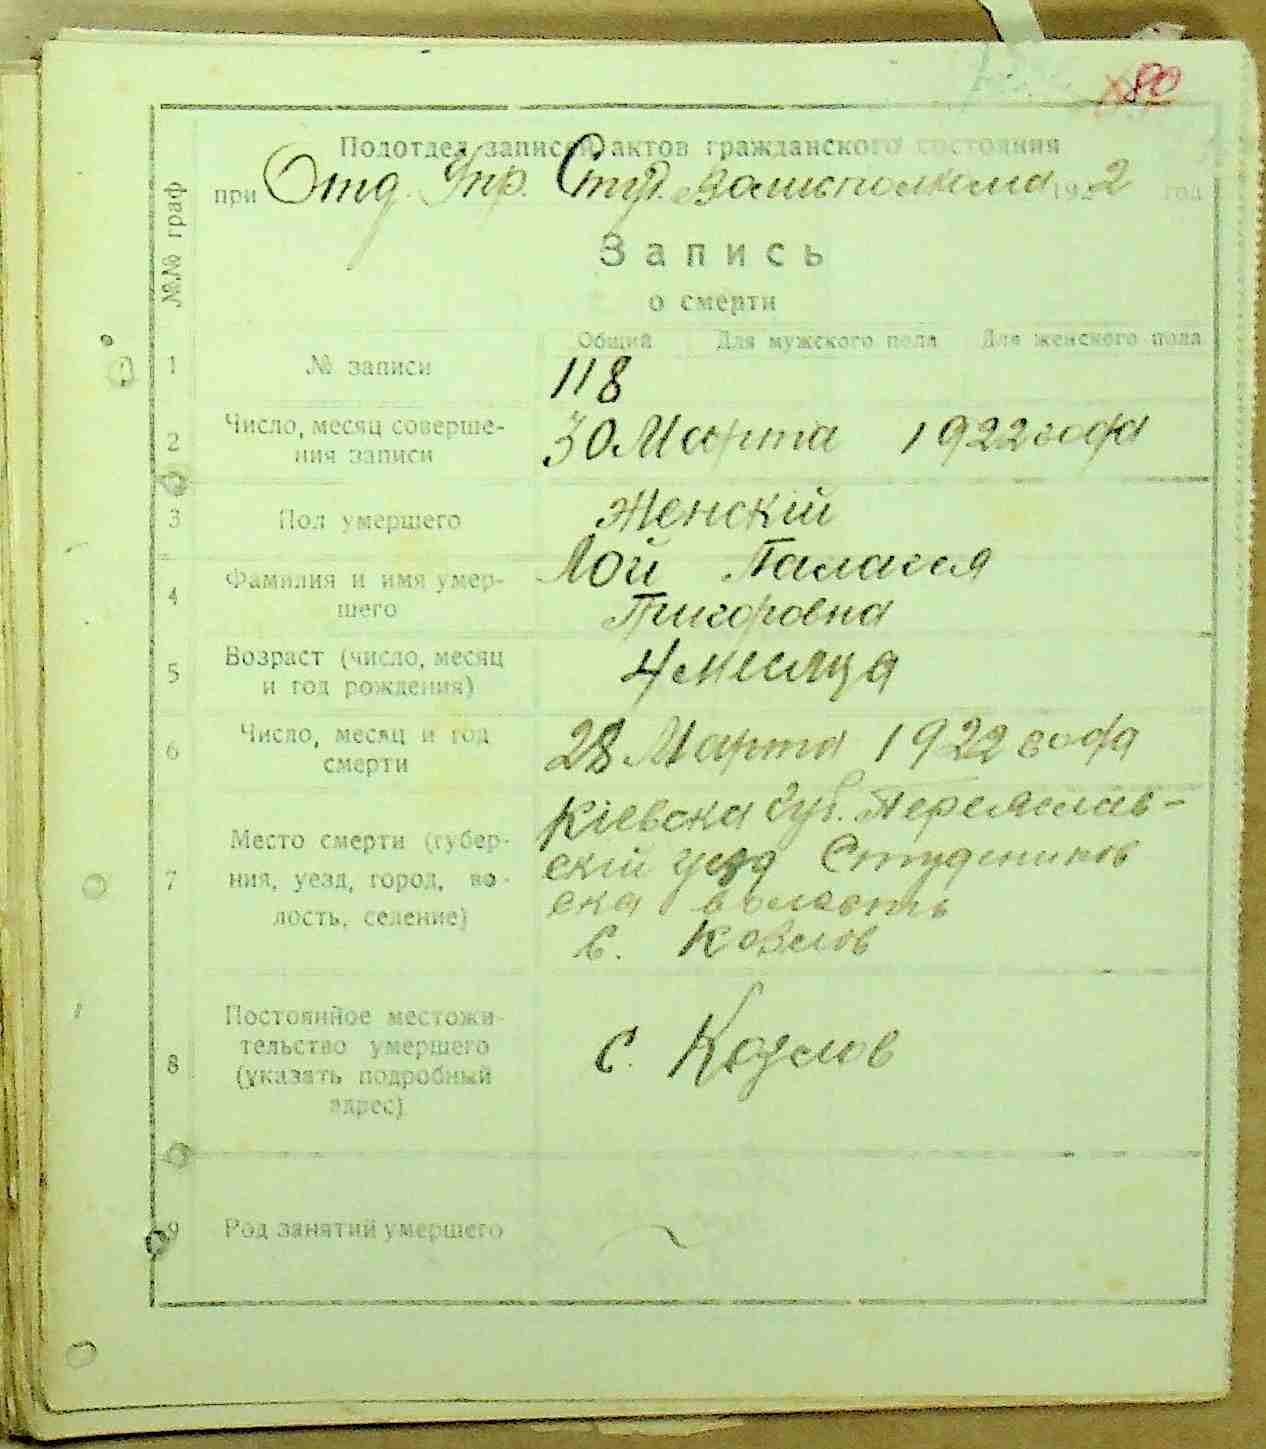 80
Подотдел записей актов гражданского состояния
при Отд. Упр. Студ. Волисполкома 1922 год
№№ граф
Запись
о смерти
Общий Для мужского пола Для женского пола
1 № записи 118
2 Число, месяц соверше-
ния записи
30 Марта 1922 года
3 Пол умершего Женскій
4 Фамилия и имя умер-
шего
Лой Палагея
Григоровна
5 Возраст (число, месяц
и год рождения)
4 месяца
6 Число, месяц и год
смерти
28 Марта 1922 года
7 Место смерти (губер-
ния, уезд, город, во-
лость, селение)
Кіевска губ. Переяслав-
скій уезд Студеников
ска волость
с. Козлов
8 Постоянное местожи-
тельство умершего
(указать подробный
адрес)
с. Козлов
9 Род занятий умершего